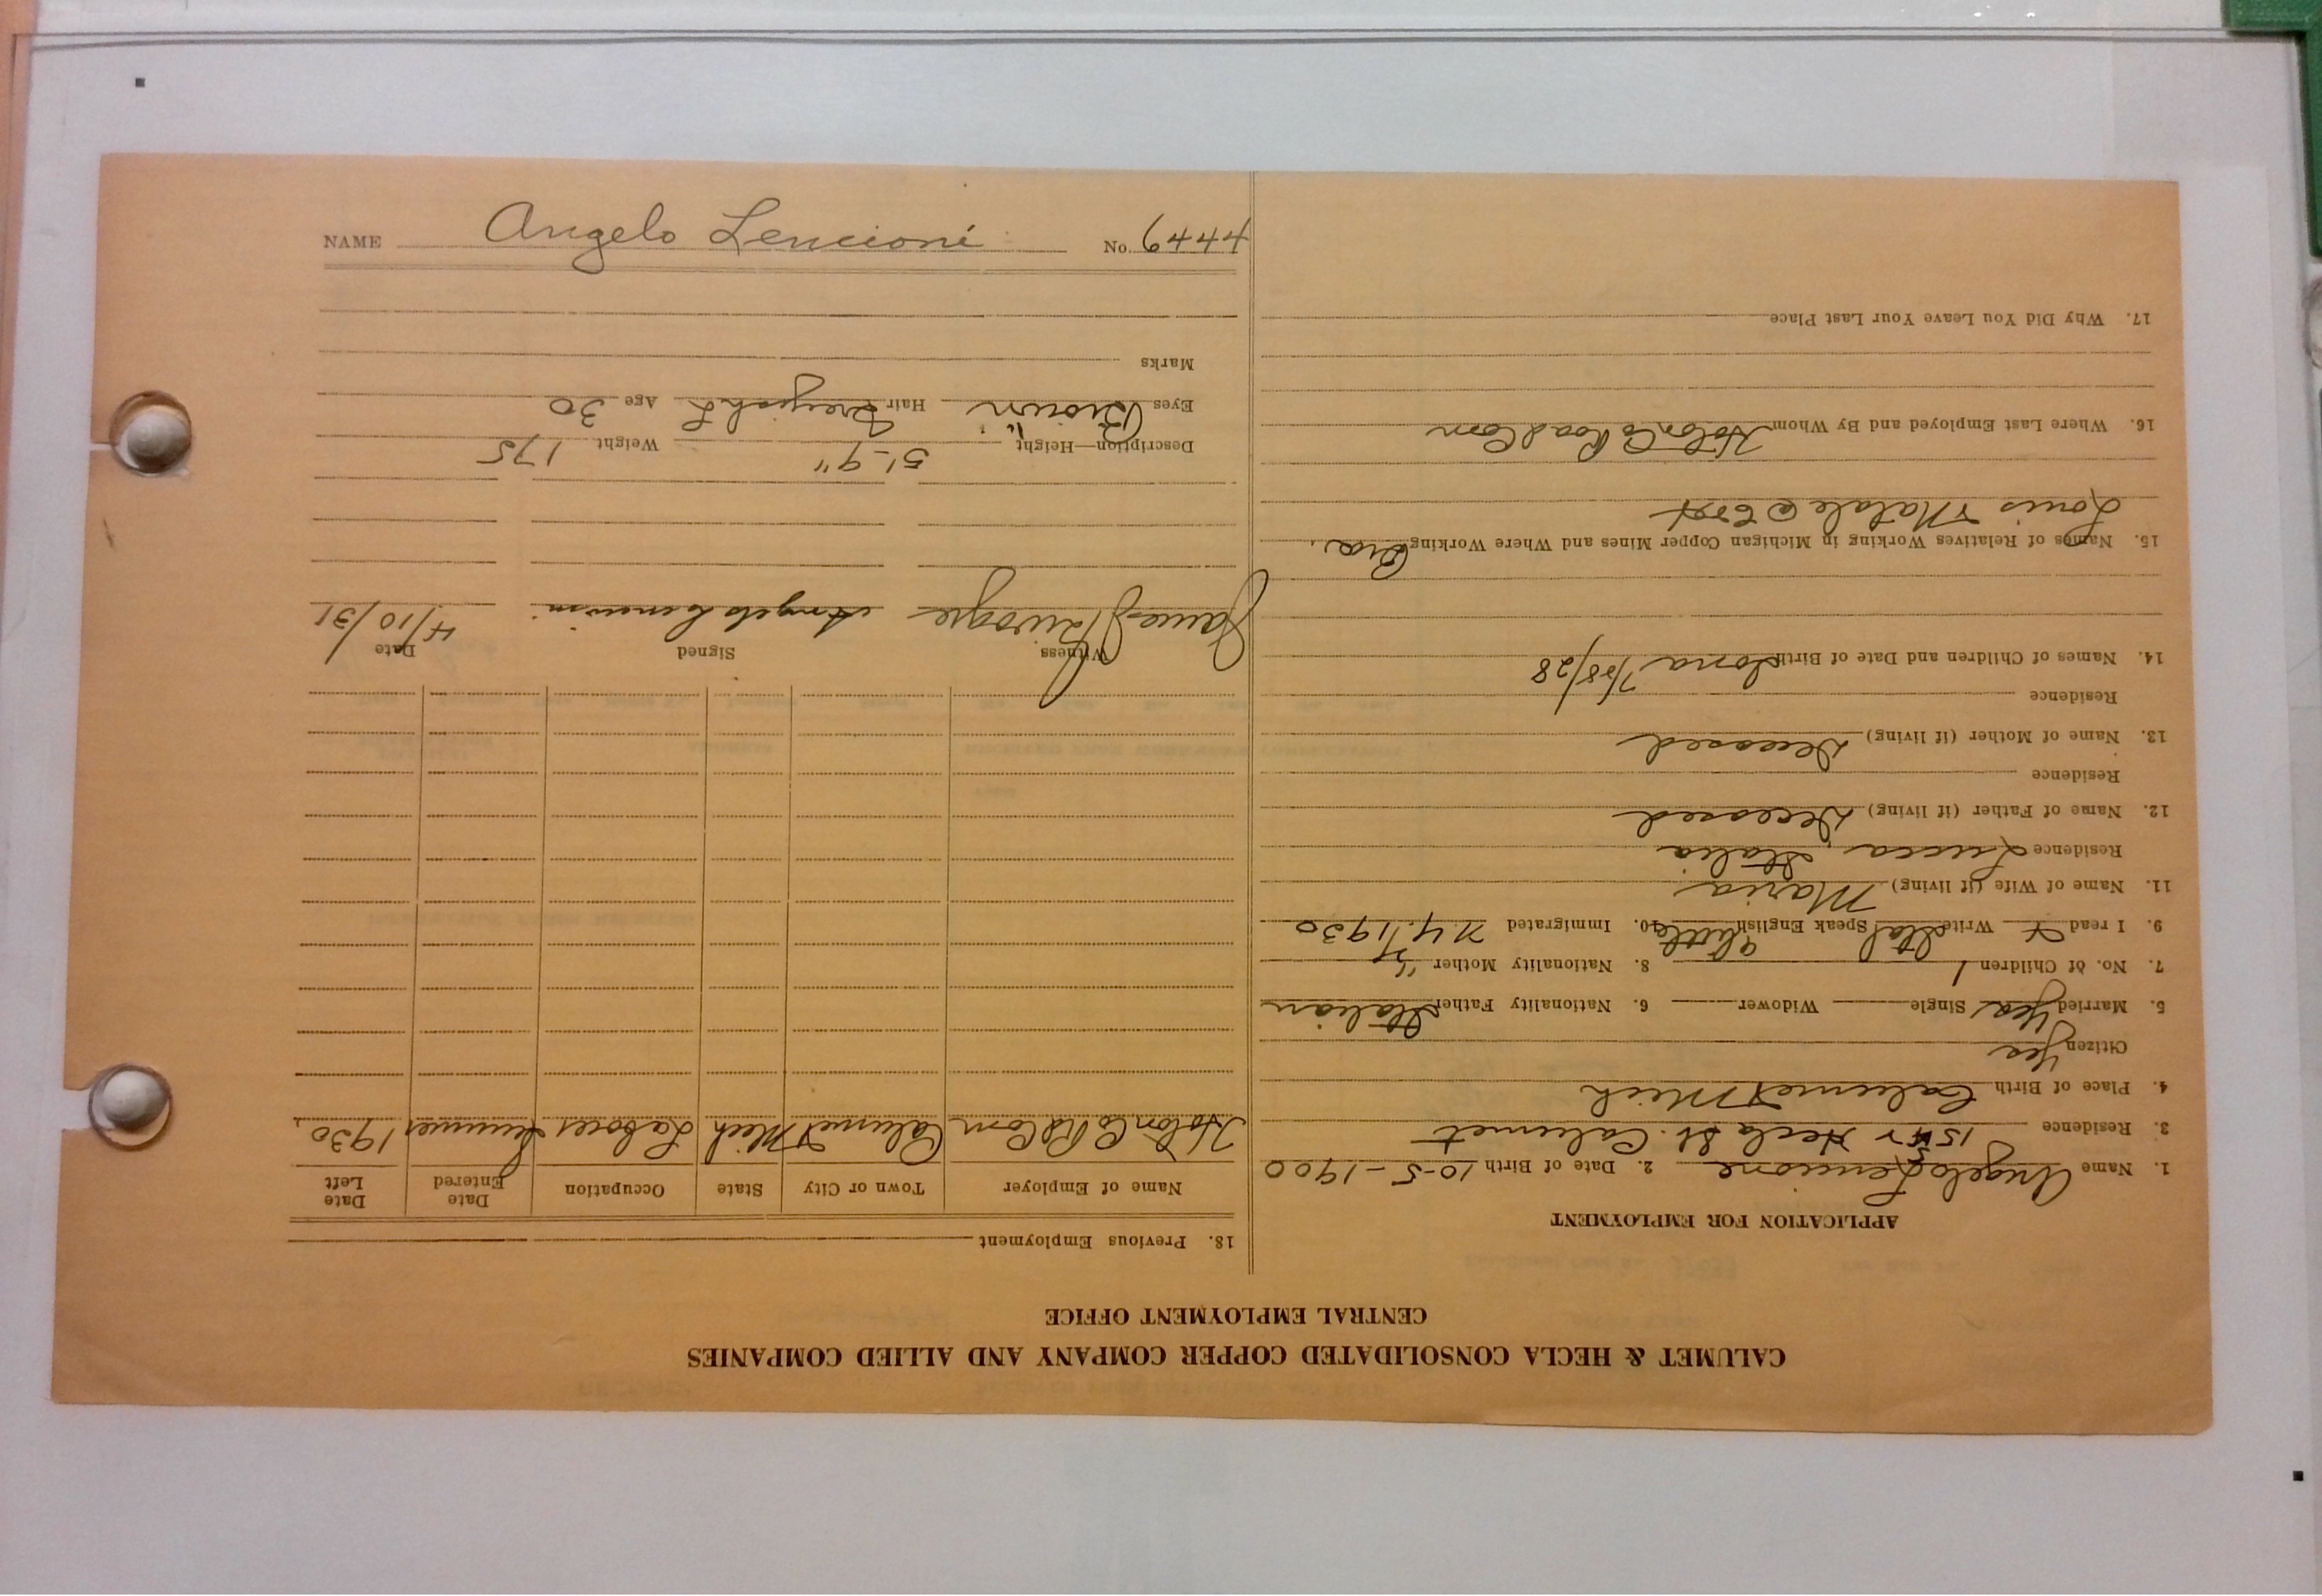 NAME Angelo Lencioni No. 6444
CALUMET & HECLA CONSOLIDATED COPPER COMPANY AND ALLIED COMPANIES
CENTRAL EMPLOYMENT OFFICE
APPLICATION FOR EMPLOYMENT
1. Name Angelo Lencione 2. Date of Birth 10-5-1900
3. Residence Hecla St. Calumet
4. Place of Birth Calumet Mich
Citizen Yes
5. Married Yes Single Widower 6. Nationality Father Italian
7. No. of Children 1 8. Nationality Mother "
9. I read Write Ital Speak English little 10. Immigrated N.Y. 1930
11. Name of Wife (if living) Maria
Residence Lucca, Italia
12. Name of Father (if living) Deceased
Residence
13. Name of Mother (if living) Deceased
Residence
14. Names of Children and Date of Birth 7/28/28
15. Names of Relatives Working in Michigan Copper Mines and Where Working
Louis
16. Where Last Employed and By Whom Hoton Co Road Com
17. Why Did You Leave Your Last Place
18. Previous Employment
Name of Employer Town or City State Occupation Date Entered Date Left
Hoton Co Rd Com Calumet Mich Laborer Summer 1930
Witness Signed Date
James Angelo Lencioni 4/10/31
Description—Height 5'-9" Weight 175
Eyes Brown Hair Age 30
Marks